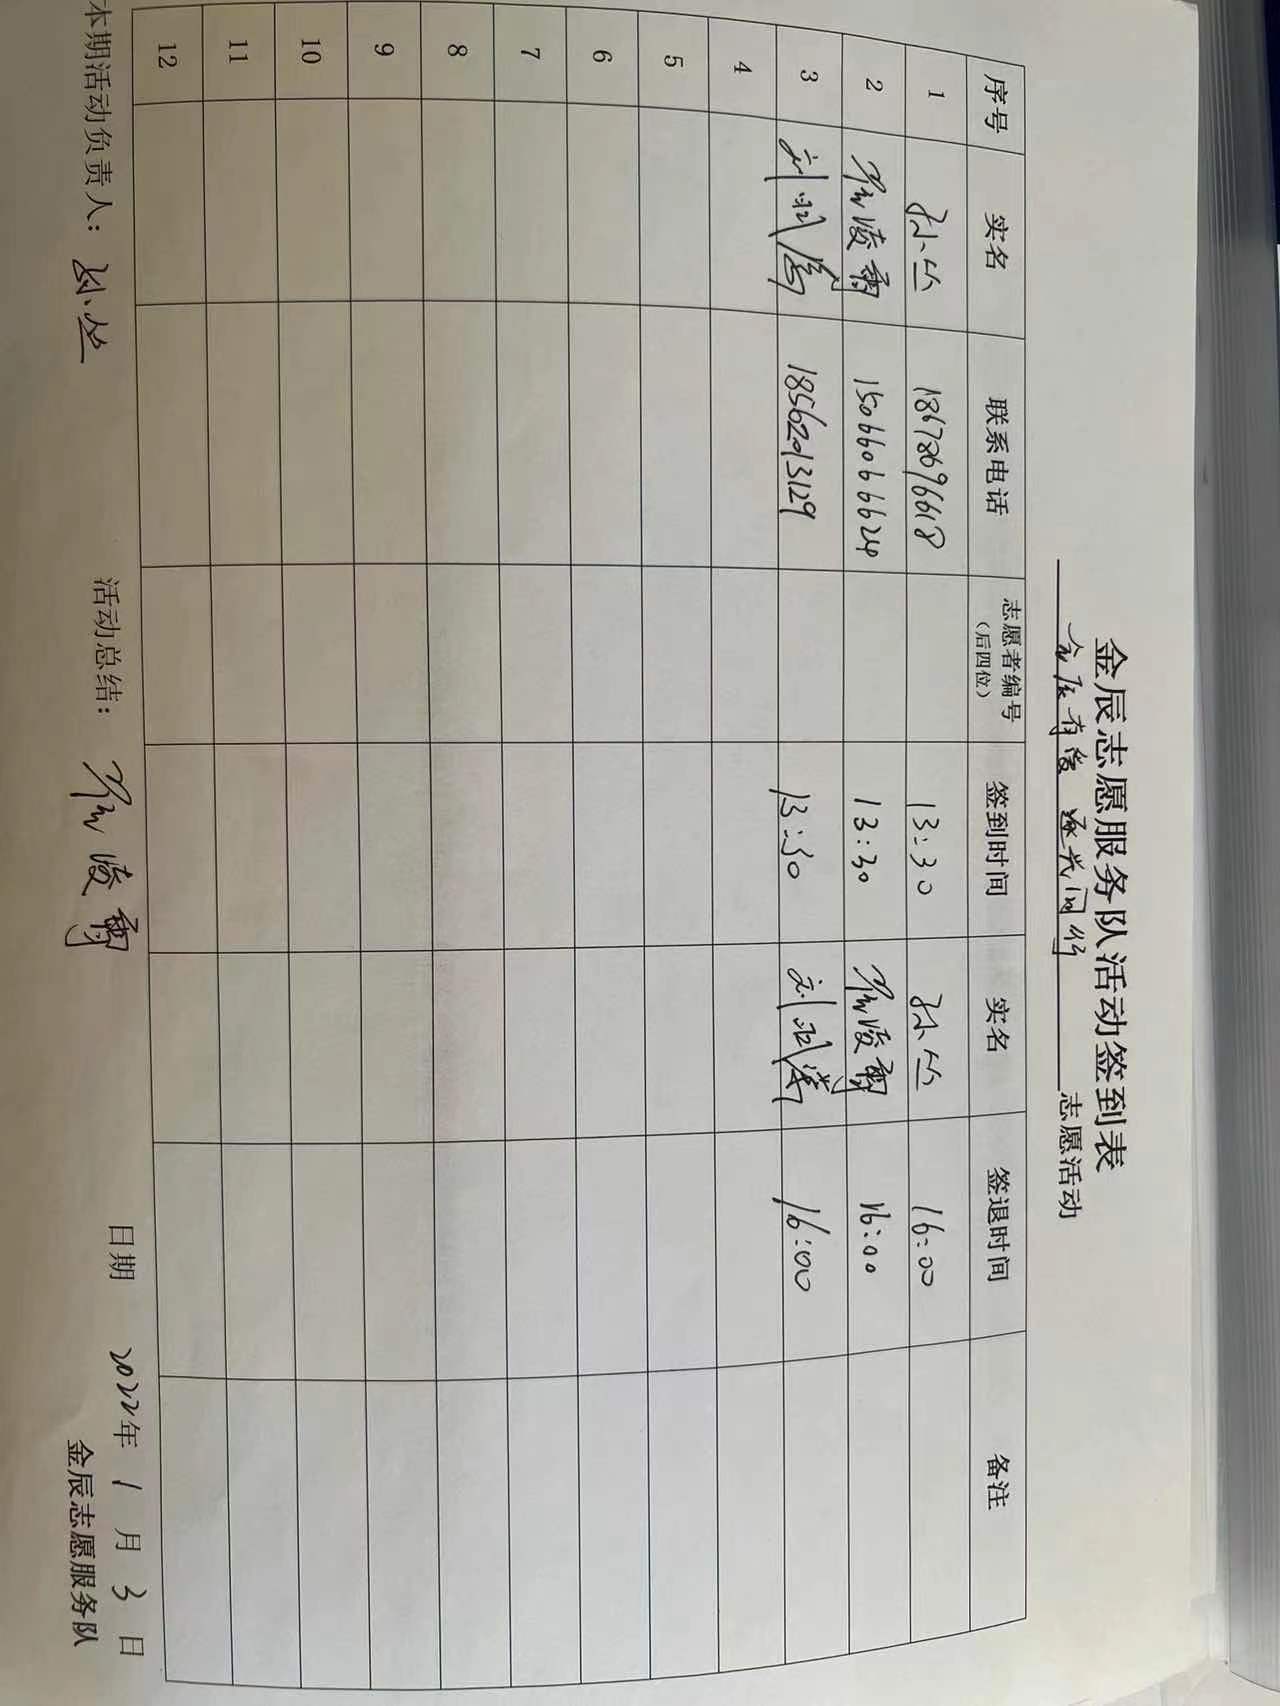 金辰志愿服务队活动签到表
金辰有爱 逐光同行 志愿活动
序号 实名 联系电话 志愿者编号（后四位） 签到时间 实名 签退时间 备注
1 孙丛 18678696618 13:30 孙丛 16:00
2 15066066624 13:30 16:00
3 18562913129 13:30 16:00
4
5
6
7
8
9
10
11
12
本期活动负责人：孙丛 活动总结： 日期 2022年1月3日
金辰志愿服务队